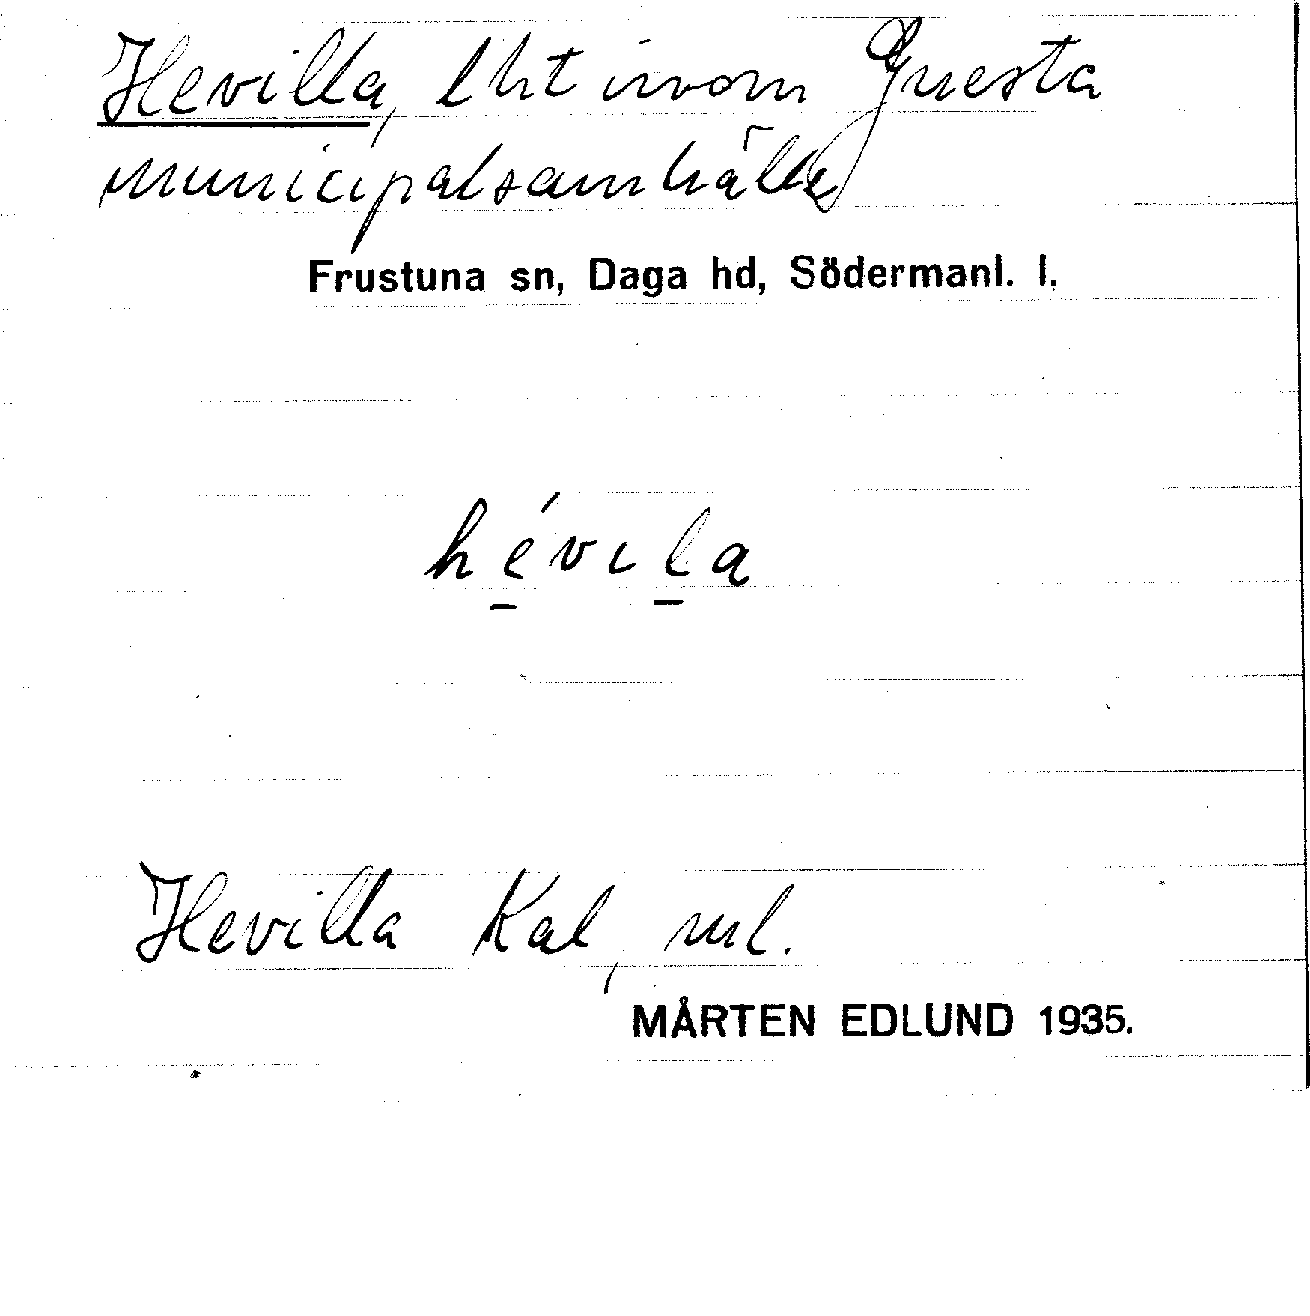 Hevilla, lht inom Gnesta
municipalsamhälle
Frustuna sn, Daga hd, Södermanl. l.
hévila
Hevilla Kal, ml.
MÅRTEN EDLUND 1935.